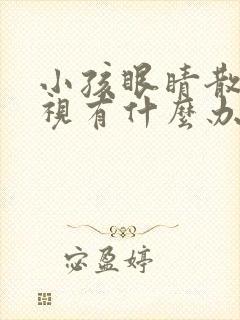 小孩眼睛散
視有什麼办
宓盈婷